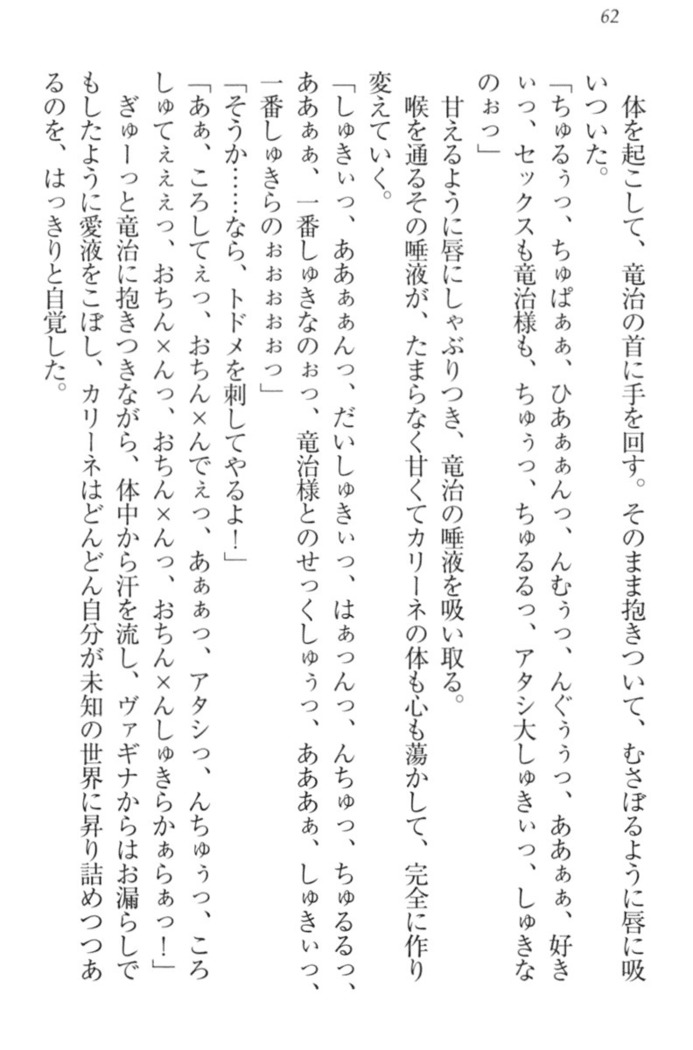 62
体を起こして、竜治の首に手を回す。そのまま抱きついて、むさぼるように唇に吸
いついた。
「ちゅるぅっ、ちゅぱぁぁ、ひあぁぁんっ、んむぅっ、んぐぅぅっ、ああぁぁ、好き
ぃっ、セックスも竜治様も、ちゅぅっ、ちゅるるっ、アタシ大しゅきぃっ、しゅきな
のぉっ」
甘えるように唇にしゃぶりつき、竜治の唾液を吸い取る。
喉を通るその唾液が、たまらなく甘くてカリーネの体も心も蕩かして、完全に作り
変えていく。
「しゅきぃっ、ああぁぁんっ、だいしゅきぃっ、はぁっんっ、んちゅっ、ちゅるるっ、
ああぁぁ、一番しゅきなのぉっ、竜治様とのせっくしゅぅっ、あああぁ、しゅきぃっ、
一番しゅきらのぉぉぉぉぉっ」
「そうか……なら、トドメを刺してやるよ！」
「あぁ、ころしてぇっ、おちん×んでぇっ、あぁぁっ、アタシっ、んちゅぅっ、ころ
しゅてぇぇぇっ、おちん×んっ、おちん×んっ、おちん×んしゅきらかぁらぁっ！」
ぎゅーっと竜治に抱きつきながら、体中から汗を流し、ヴァギナからはお漏らしで
もしたように愛液をこぼし、カリーネはどんどん自分が未知の世界に昇り詰めつつあ
るのを、はっきりと自覚した。